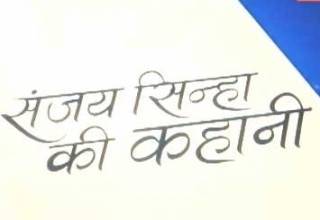 संजय सिन्हा
की कहानी